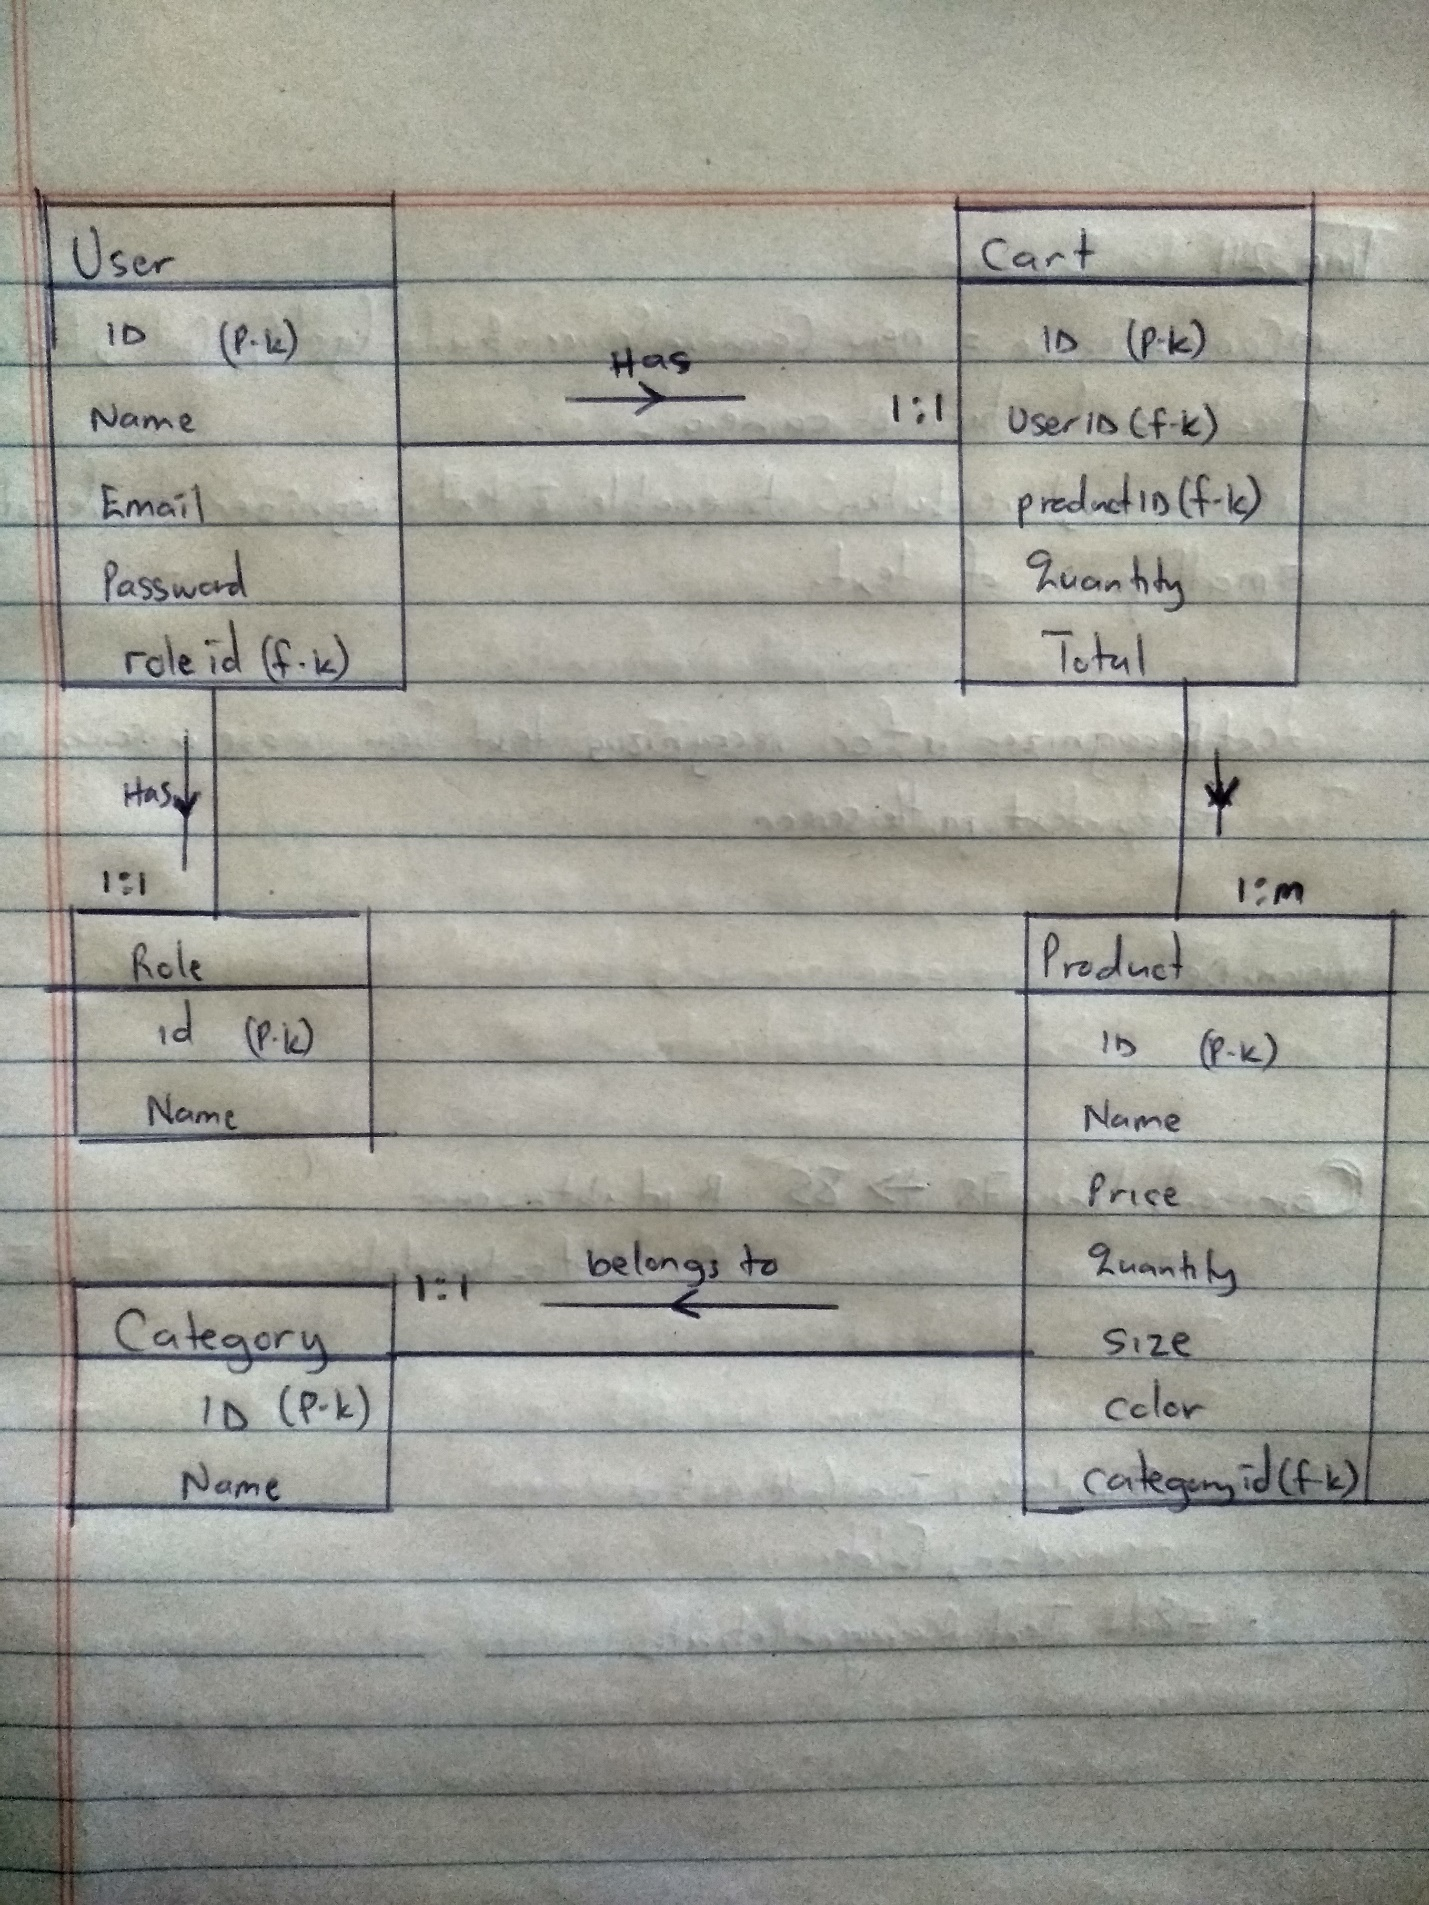 User
ID (P.k)
Name
Email
Password
role id (f.k)
Has
1:1
Cart
ID (p.k)
User ID (f-k)
product ID (f-k)
Quantity
Total
Has
1:1
Role
id (P.k)
Name
1:m
Product
ID (P-k)
Name
Price
Quantity
Size
Color
category id (f-k)
belongs to
1:1
Category
ID (P-k)
Name